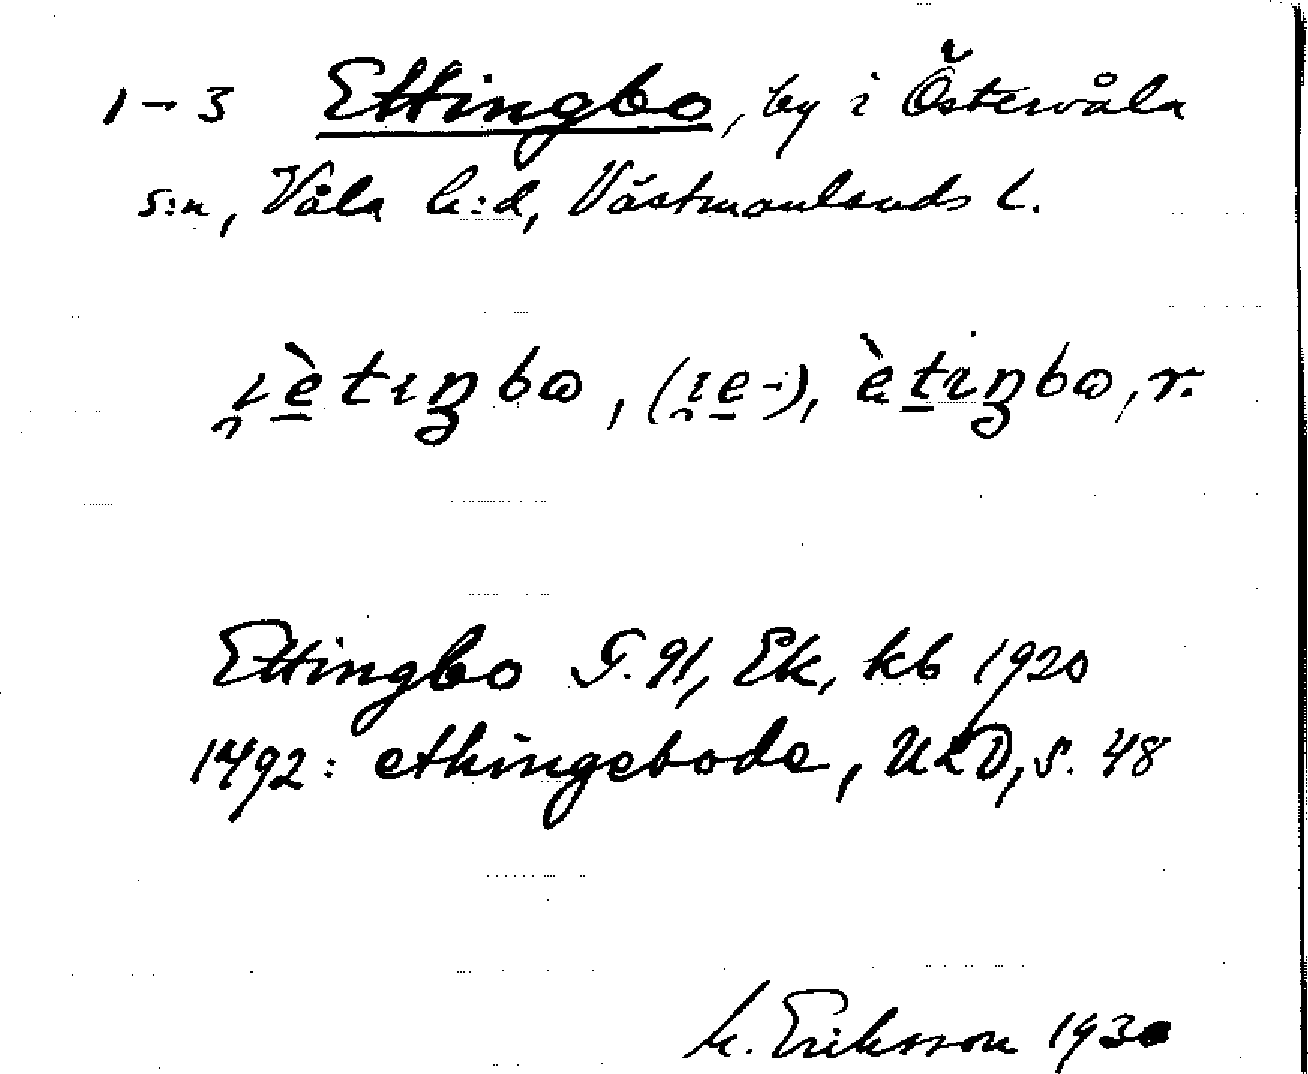 1-3 Ettingbo, by i Östervåla
s:n, Våla h:d, Västmanlands l.
ı̯è̠tıŋbɷ, (ı̯e̠-), èt̠ıŋbɷ, r.
Ettingbo T. 91, Ek, kb 1920
1492: ethingebode, ULD, s. 48
M. Eriksson 1930